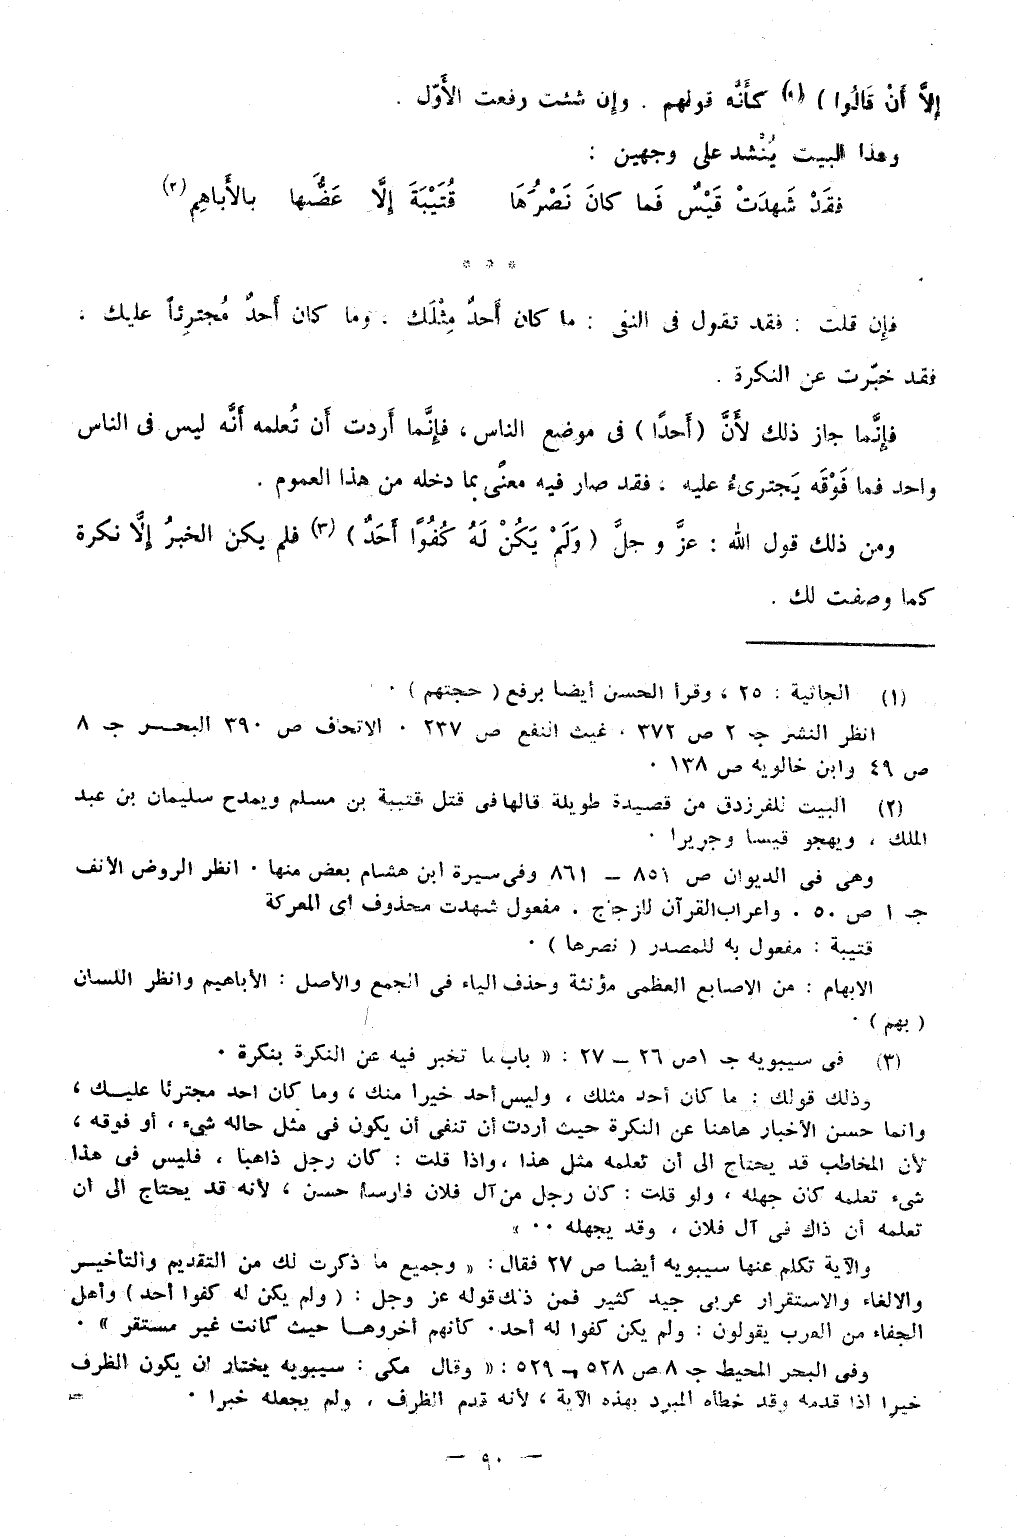 إلاَّ أَنْ قَالُوا ) (١) كأَنَّه قولهم . وإن شئت رفعت الأَوّل .
وهذا البيت يُنْشد على وجهين :
فقَدْ شَهدَتْ قَيْسٌ فَما كانَ نَصْرُهَا قُتَيْبَةَ إلَّا عَضُّها بالأَباهِمِ (٢)
* * *
فإن قلت : فقد تقول فى النفى : ما كان أَحدٌ مِثْلَك . وما كان أَحدٌ مُجترِئاً عليك .
فقد خبّرت عن النكرة .
فإنَّما جاز ذلك لأَنَّ (أَحدًا) فى موضع الناس ، فإنَّما أَردت أَن تُعلمه أَنَّه ليس فى الناس
واحد فما فَوْقَه يَجترىءُ عليه ، فقد صار فيه معنًى بما دخله من هذا العموم .
ومن ذلك قول الله : عزَّ و جلَّ ( وَلَمْ يَكُنْ لَهُ كُفُوًا أَحَدٌ ) (٣) فلم يكن الخبرُ إلَّا نكرة
كما وصفت لك .
(١) الجاثية : ٢٥ ، وقرأ الحسن أيضا برفع ( حجتهم ) ٠
انظر النشر جـ ٢ ص ٣٧٢ ٠ غيث النفع ص ٢٣٧ ٠ الاتحاف ص ٣٩٠ البحـــر جـ ٨
ص ٤٩ وابن خالويه ص ١٣٨ ٠
(٢) البيت للفرزدق من قصيدة طويلة قالها فى قتل قتيبة بن مسلم ويمدح سليمان بن عبد
الملك ، ويهجو قيسا وجريرا ٠
وهى فى الديوان ص ٨٥١ ــ ٨٦١ وفى سيرة ابن هشام بعض منها ٠ انظر الروض الأنف
جـ ١ ص ٥٠ . واعراب القرآن للزجاج . مفعول شهدت محذوف أى المعركة
قتيبة : مفعول به للمصدر ( نصرها ) ٠
الابهام : من الاصابع العظمى مؤنثة وحذف الياء فى الجمع والأصل : الأباهيم وانظر اللسان
( بهم ) ٠
(٣) فى سيبويه جـ ١ ص ٢٦ ــ ٢٧ : « باب ما تخبر فيه عن النكرة بنكرة ٠
وذلك قولك : ما كان أحد مثلك ، وليس أحد خيرا منك ، وما كان احد مجترئا عليــك ،
وانما حسن الأخبار هاهنا عن النكرة حيث أردت أن تنفى أن يكون فى مثل حاله شىء ، أو فوقه ،
لأن المخاطب قد يحتاج الى أن تعلمه مثل هذا ، واذا قلت : كان رجل ذاهبا ، فليس فى هذا
شىء تعلمه كان جهله ، ولو قلت : كان رجل من آل فلان فارسا حسن ، لأنه قد يحتاج الى أن
تعلمه أن ذاك فى آل فلان ، وقد يجهله ٠٠ »
والآية تكلم عنها سيبويه أيضا ص ٢٧ فقال : « وجميع ما ذكرت لك من التقديم والتأخيــر
والالغاء والاستقرار عربى جيد كثير فمن ذلك قوله عز وجل : ( ولم يكن له كفوا أحد ) وأهل
الجفاء من العرب يقولون : ولم يكن كفوا له أحد ٠ كأنهم أخروهــا حيث كانت غير مستقر » ٠
وفى البحر المحيط جـ ٨ ص ٥٢٨ ــ ٥٢٩ : « وقال مكى : سيبويه يختار ان يكون الظرف
خيرا اذا قدمه وقد خطأه المبرد بهذه الآية ، لأنه قدم الظرف ، ولم يجعله خبرا ٠ =
— ٩٠ —